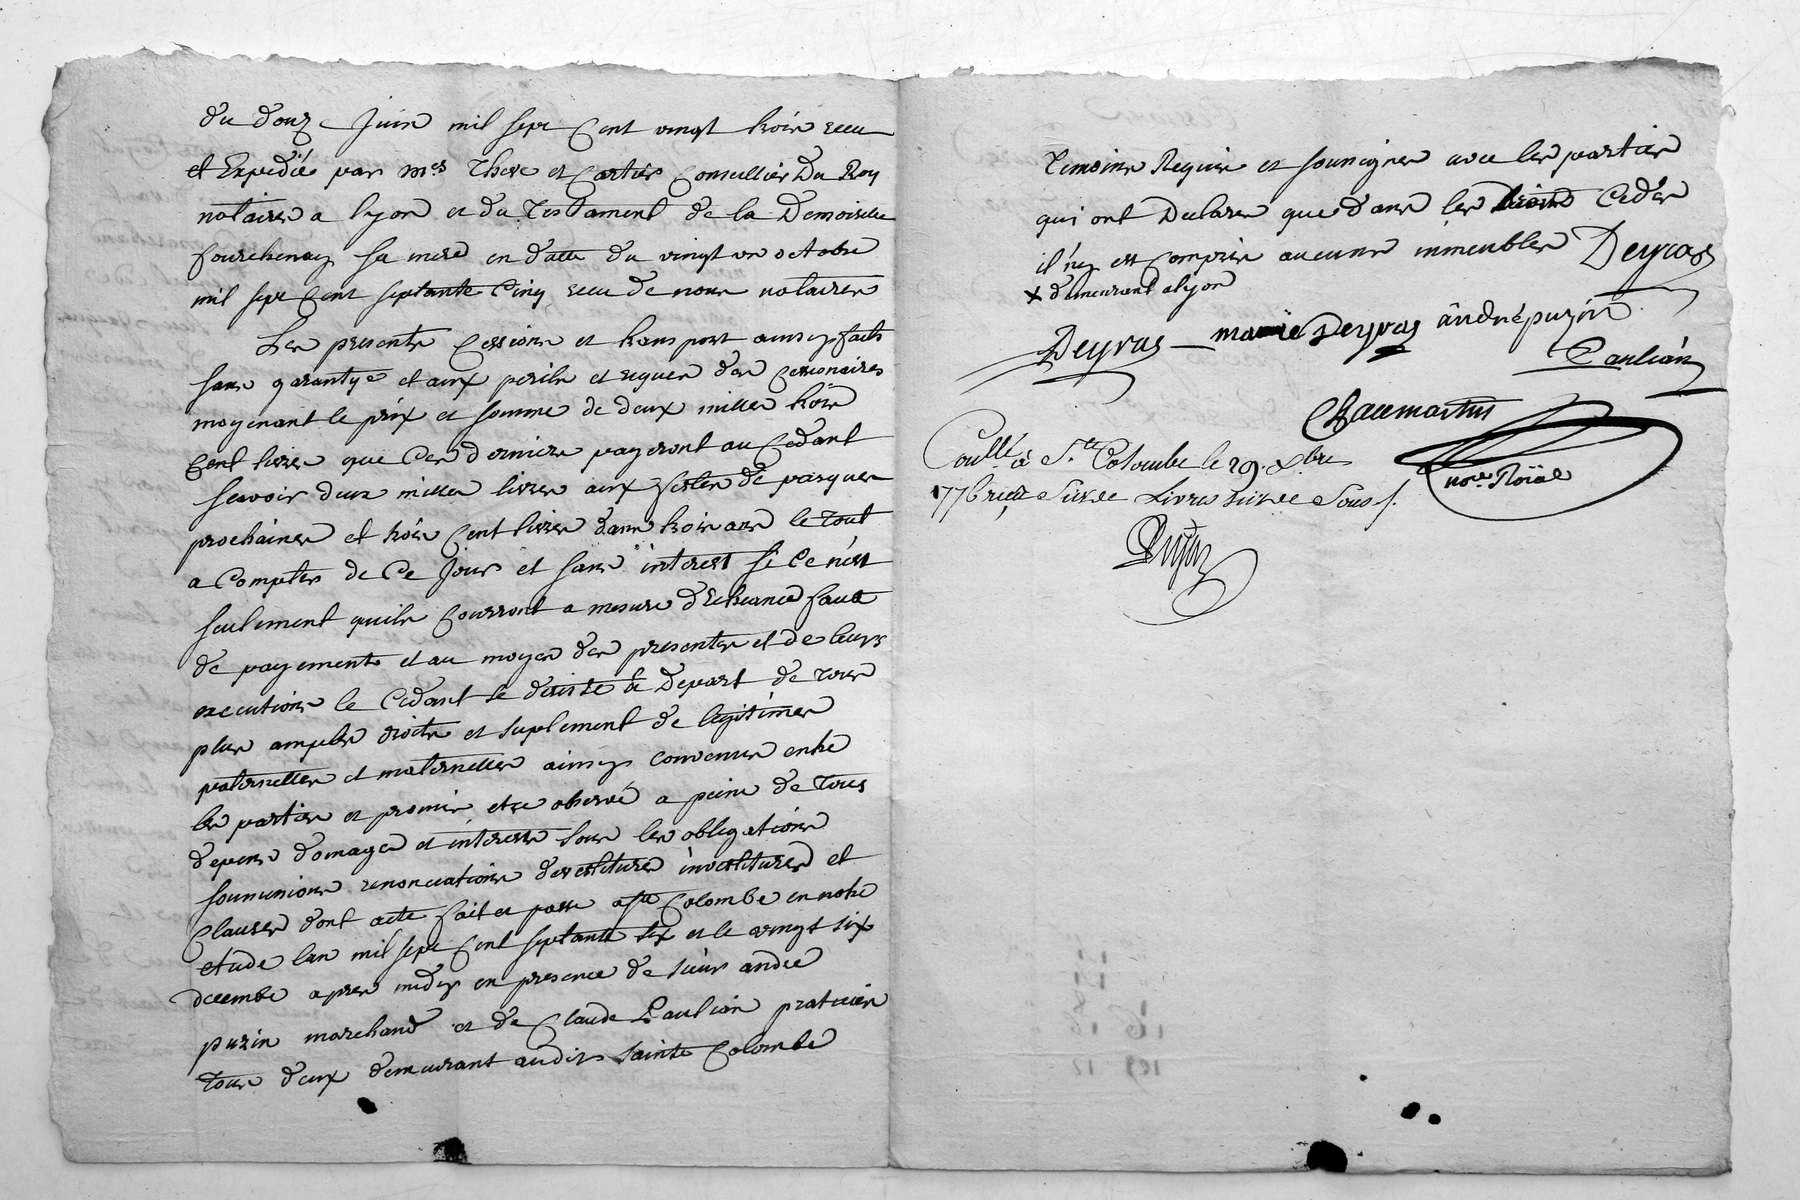 du douze Juin mil sept Cent vingt trois recu
et Expedié par mes These et Cartier Conseillier Du Roy
notaires a lyon et du Testament de la Demoiselle
fourchenay sa mere en datte du vingt un octobre
mil sept Cent septante Cinq recu de nous notaires
Les presente Cession et transport ainsy faits
sans garantye et aux perils et risques des Cessionaires
moyenant le prix et somme de deux milles trois
Cent livres que Ces derniers payeront au Cedant
scavoir deux milles livres aux festes de pasques
prochaines et trois Cent livres dans trois ans le tout
a Compter de Ce Jour et sans interest si Ce n'est
seulement quils Courront a mesure d'Echeance faute
de payements et au moyen des presentes et de leurs
executions le Cedant se desiste et Depart de tous
plus amples droits et suplement de legitimes
paternelles et maternelles ainsy convenus entre
les parties et promis etre observé a peine de tous
depens domages et interests sous les obligations
soumissions renonciations devestitures investitures et
Clauses dont acte fait et passe a ste Colombe en notre
etude lan mil sept Cent septante six et le vingt six
decembre apres midy en presence de sieur andre
puzin marchand et de Claude Paulian praticien
tous deux demeurant audit sainte Colombe
temoins Requis et soussignes avec les parties
qui ont Declarer que dans les droits Cedés
il n'y est Compris aucuns immeubles Deyras
x demeurant a lyon
Deyras marie Deyras andré puzin
Paulian
Chaumartin
nore Roïal
Conllé à Ste Colombe le 29. Xbre
1776 recu Seize Livres seize Sous /.